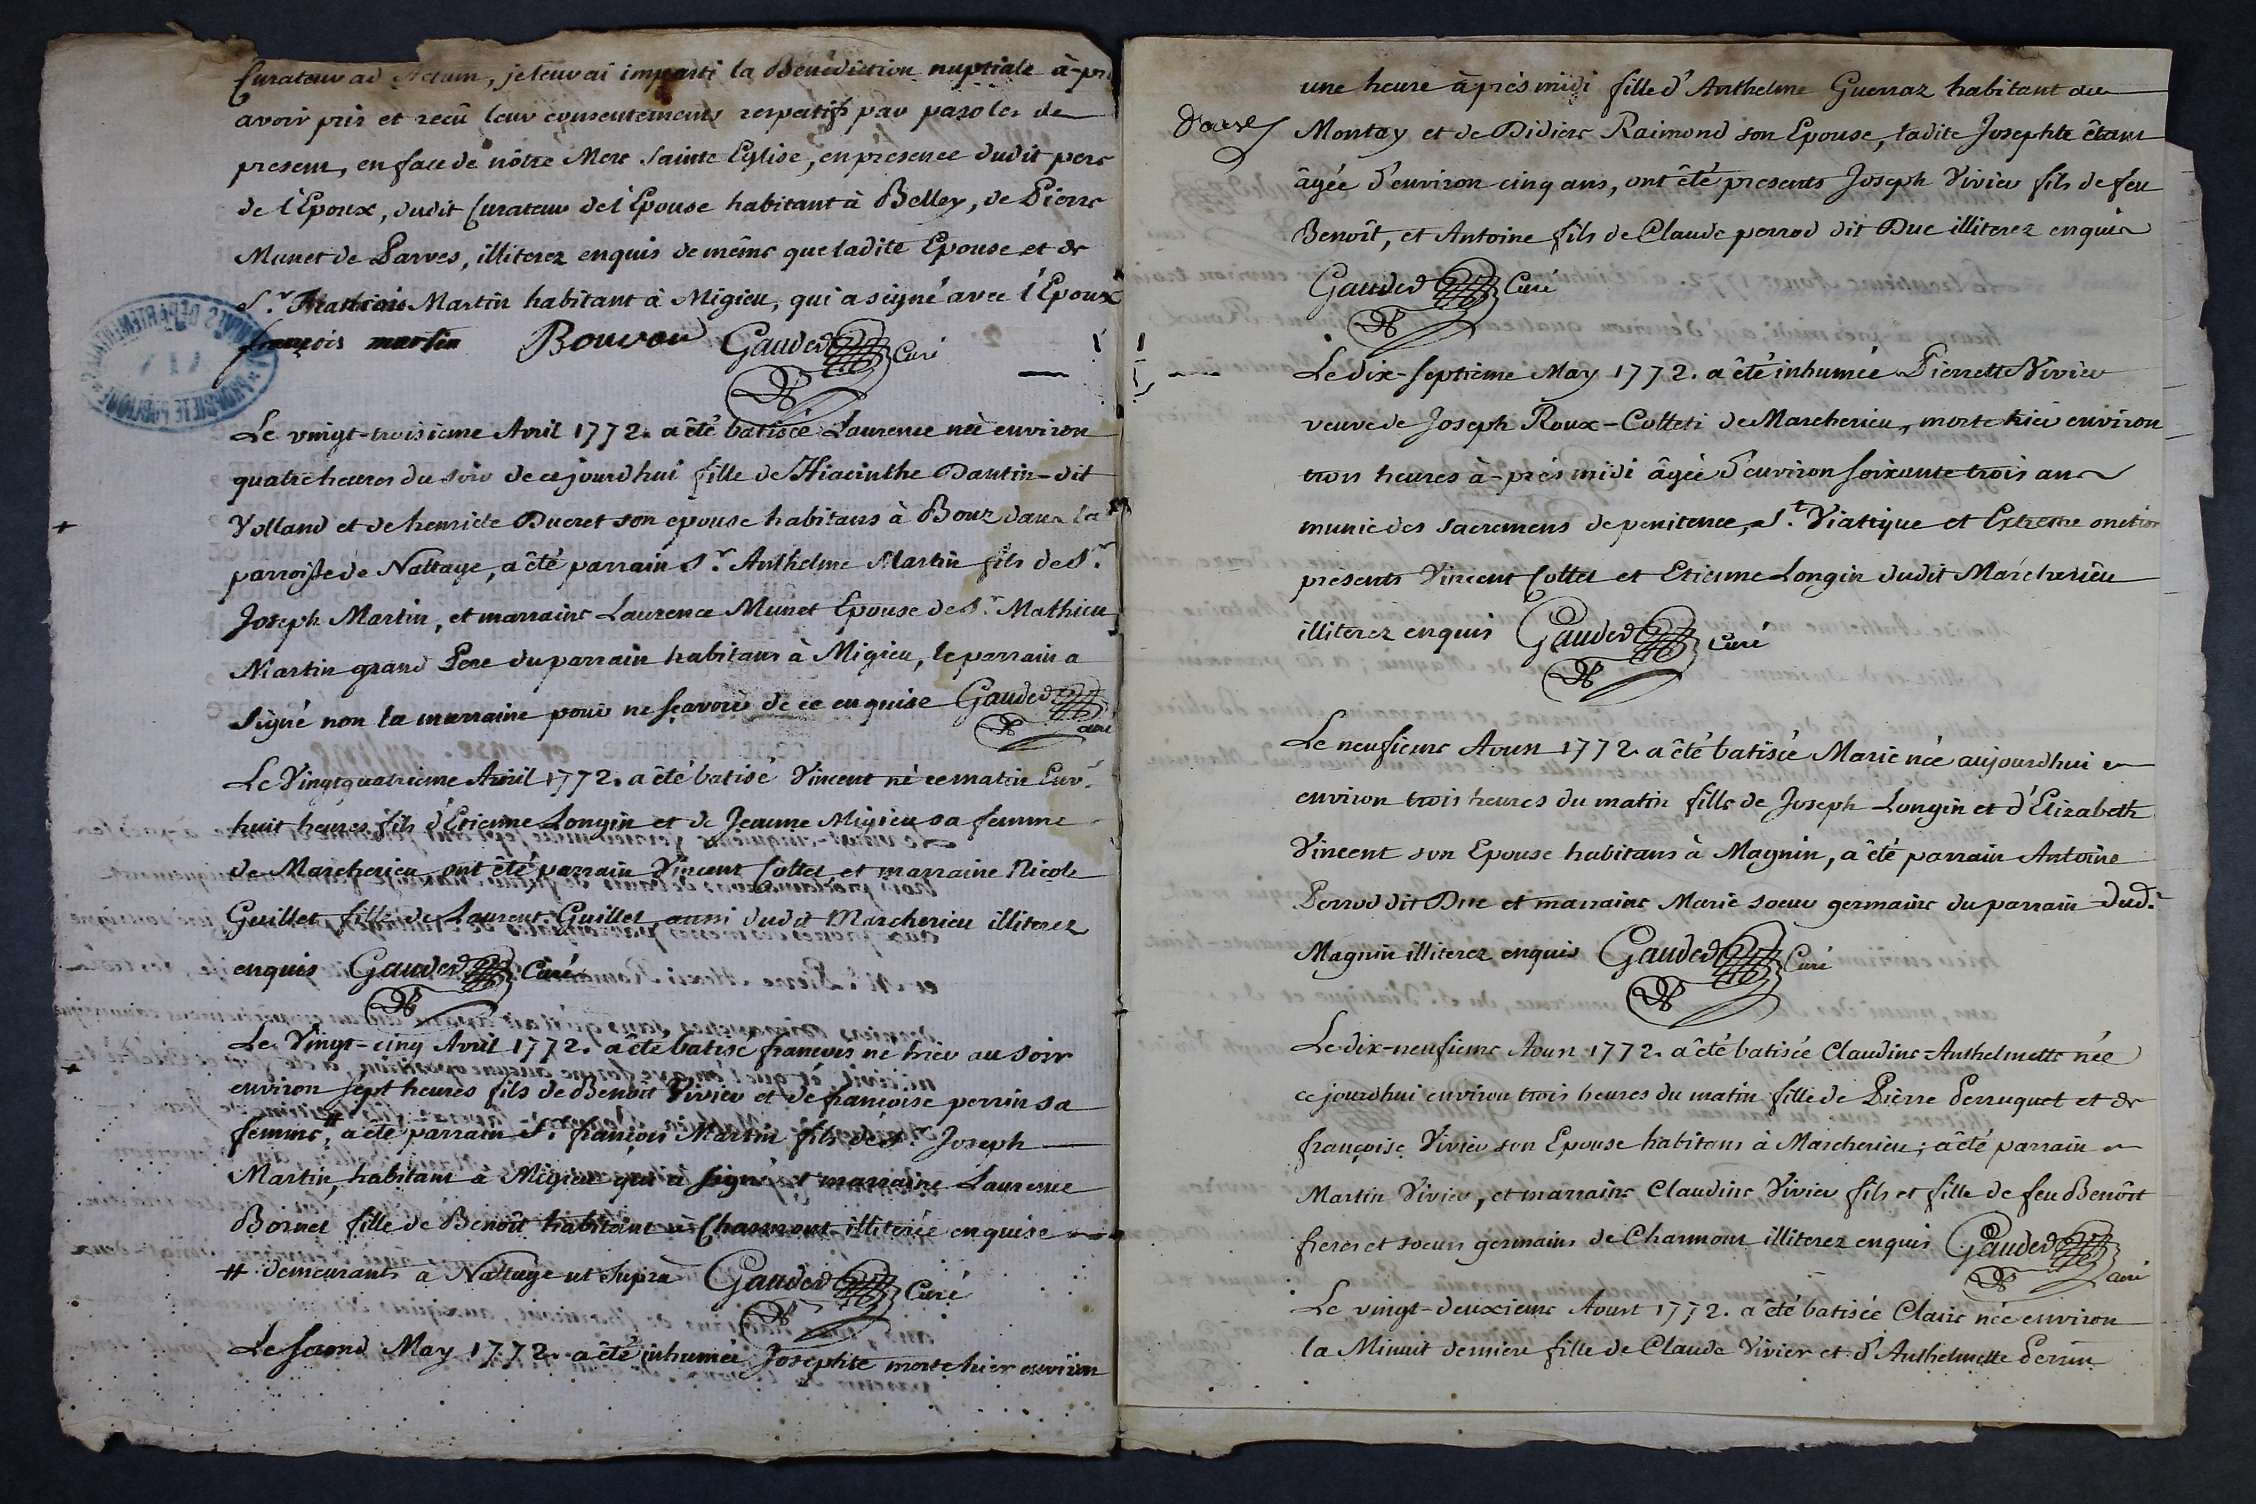 Curateur ad Actum, je leur ai imparti la Bénédiction nuptiale à-pr
avoir pris et recû leur consentements respectifs par paroles de
present, en face de nôtre Mere Sainte Eglise, en presence dudit pere
de l'Epoux, dudit Curateur de l'Epouse habitant à Belley, de Pierre
Munet de Parves, illiterez enquis de même que ladite Epouse et de
Sr. François Martin habitant à Migieu, qui a signé avec l'Epoux
françois martin Bouvou Gauded Curé
Le vingt-troisieme Avril 1772. a été batisée Laurence née environ
quatre heures du soir de cejourdhui fille de Hiacinthe Dantin-dit
Volland et de henriete Ducret son epouse habitans à Bouz dans la
parroisse de Nattage, a été parrain Sr. Anthelme Martin fils de Sr.
Joseph Martin, et marraine Laurence Munet Epouse de Sr. Mathieu
Martin grand Pere du parrain habitans à Migieu, le parrain a
Signé non la marraine pour ne sçavoir de ce enquise Gauded
curé
Le Vingtquatrieme Avril 1772. a été batisé Vincent né ce matin Env.
huit heures fils d'Etienne Longin et de Jeanne Migieu sa femme
de Marcherieu ont été parrain Vincent Collet, et marraine Nicole
Guillet fille de Laurent Guillet aussi dudit Marcherieu illiterez
enquis Gauded Curé
Le Vingt-cinq Avril 1772. a été batisé francois né hier au soir
environ sept heures fils de Benoît Vivier et de françoise perrin sa
femme #, a été parrain Sr. françois Martin fils de Sr Joseph
Martin, habitant à Migieu qui a signé et marraine Laurence
Bornet fille de Benoît habitant à Charmont illiterée enquise
# demeurants à Nattage ut Suprà Gauded Curé
Le second May 1772. a été inhumée Josephte morte hier environ
une heure après midi fille d'Anthelme Guerraz habitant au
Montay et de Didiere Raimond son Epouse, ladite Josephte êtant
âgée d'environ cinq ans, ont été presents Joseph Vivier fils de feu
Benoît, et Antoine fils de Claude perrod dit Duc illiterez enquis
Gauded Curé
Le dix-septième May 1772. a été inhumée Pierrette Vivier
veuve de Joseph Roux-Colleti de Marcherieu, morte hier environ
trois heures à-près midi âgée d'environ soixante trois ans
munie des sacremens de penitence, St. Viatique et Extreme onction
présents Vincent Collet et Etienne Longin dudit Marcherieu
illiterez enquis Gauded Curé
Le neufieme Aoust 1772. a été batisée Marie née aujourdhui
environ trois heures du matin fille de Joseph Longin et d'Elizabeth
Vincent son Epouse habitans à Magnin, a été parrain Antoine
Perrod dit Duc et marraine Marie soeur germaine du parrain dud.
Magnin illiterez enquis Gauded Curé
Le dix-neufieme Aoust 1772. a été batisée Claudine-Anthelmette née
cejourdhui environ trois heures du matin fille de Pierre Perruquet et de
françoise Vivier son Epouse habitans à Marcherieu; a été parrain
Martin Vivier, et marraine Claudine Vivier fils et fille de feu Benôit
freres et soeurs germains de Charmont illiterez enquis Gauded
curé
Le vingt-deuxieme Aoust 1772. a été batisée Claire née environ
la Minuit derniere fille de Claude Vivier et d'Anthelmette Perrin